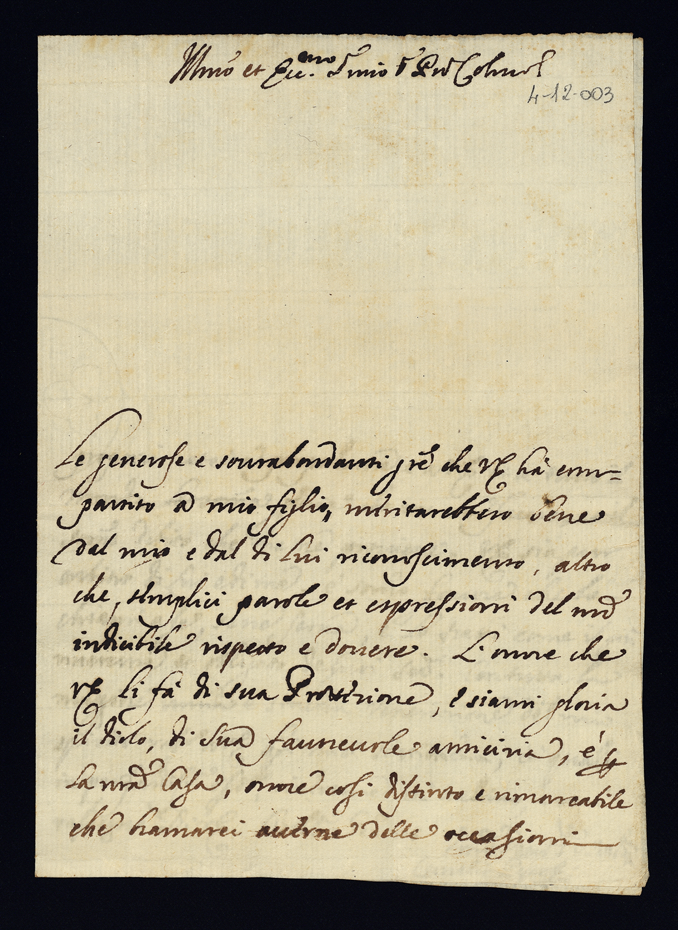 Illmo et Ecc.mo Sig.
4-12-003
Le generose e sourabondanti gre che VE hà com=
partito à mio figlio, meritarebbero bene
dal mio e dal di lui riconoscimento, altro
che, semplici parole et espressioni del mio
indicibile rispetto e douere. L'onore che
VE li fà di sua Protetione, e siami gloria
il dirlo, di sua fauoreuole amicitia, è p
la mia Casa, onore cosi distinto e rimarcabile
che bramarei auerne delle occasioni